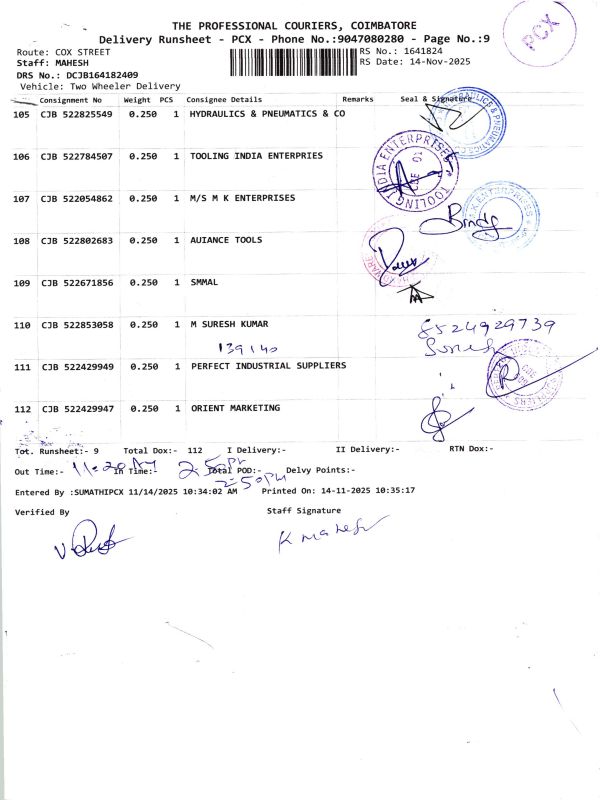 THE PROFESSIONAL COURIERS, COIMBATORE
PCX
Delivery Runsheet - PCX - Phone No.:9047080280 - Page No.:9
Route: COX STREET
RS No.: 1641824
Staff: MAHESH
RS Date: 14-Nov-2025
DRS No.: DCJB164182409
Vehicle: Two Wheeler Delivery
Consignment No Weight PCS Consignee Details Remarks Seal & Signature
105 CJB 522825549 0.250 1 HYDRAULICS & PNEUMATICS & CO
106 CJB 522784507 0.250 1 TOOLING INDIA ENTERPRIES
TOOLING INDIA ENTERPRISES
CBE 01
107 CJB 522054862 0.250 1 M/S M K ENTERPRISES
108 CJB 522802683 0.250 1 AUIANCE TOOLS
109 CJB 522671856 0.250 1 SMMAL
110 CJB 522853058 0.250 1 M SURESH KUMAR
8524929739
Suresh
139140
111 CJB 522429949 0.250 1 PERFECT INDUSTRIAL SUPPLIERS
112 CJB 522429947 0.250 1 ORIENT MARKETING
Tot. Runsheet:- 9 Total Dox:- 112 I Delivery:- II Delivery:- RTN Dox:-
Out Time:- 11:20 AM In Time:- 2:50PM Total POD:- Delvy Points:-
2:50PM
Entered By :SUMATHIPCX 11/14/2025 10:34:02 AM Printed On: 14-11-2025 10:35:17
Verified By Staff Signature
K Mahesh